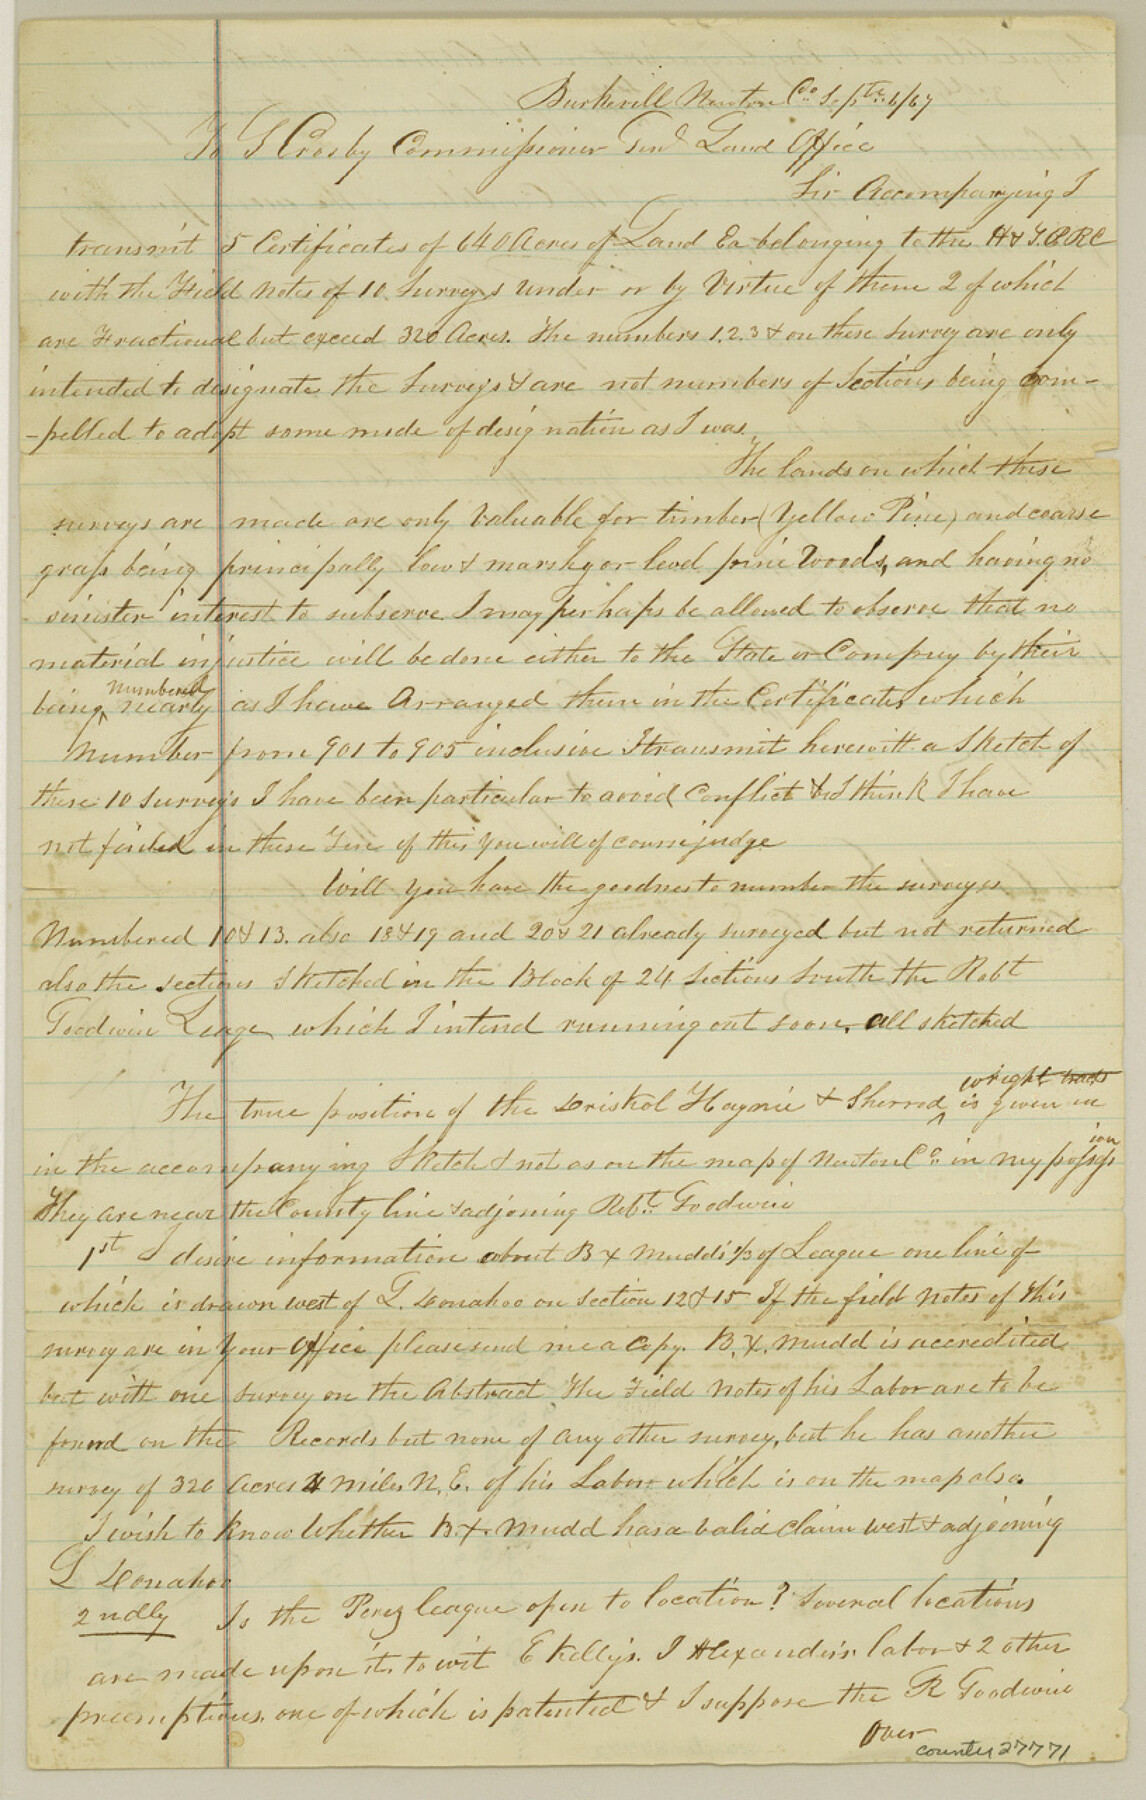 Burkevill Newton Co. Septr. 6/67
To S Crosby Commissioner Genl Land Office
Sir Accompanying I
transmit 5 Certificates of 640 Acres of Land Ea belonging to the H & T.C.RC
with the Field Notes of 10 Surveys under or by Virtue of them 2 of which
are Fractional but exceed 320 Acres. The numbers 1.2.3 & on these survey are only
intended to designate the Surveys & are not numbers of Sections being com-
-pelled to adopt some mode of designation as I was.
The lands on which these
surveys are made are only valuable for timber (Yellow Pine) and coarse
grass being principally low & marshy or level pine woods, and having no
sinister interest to subserve I may perhaps be allowed to observe that no
material injustice will be done either to the State or Company by their
numbered
being nearly as I have Arranged them in the Certificates, which
Number from 901 to 905 inclusive I transmit herewith a Sketch of
these 10 Surveys I have been particular to avoid Conflict & I think I have
not failed in these Five of this you will of course judge
Will you have the goodness to number the surveys
Numbered 10 & 13. also 18 & 19 and 20 & 21 already surveyed but not returned
also the sections Sketched in the Block of 24 Sections South the Robt
Goodwin Leage which I intend running out soon. all sketched
wright tracts
The true position of the Driskol Haynie & Sherrod is given in
in the accompanying Sketch & not as on the map of Newton Co. in my possession
They are near the County line & adjoining Robt. Goodwin
1st desire information about B X Mudd's 1/3 of League one line of
which is drawn west of L. Donahoo on Section 12 & 15 If the field Notes of this
survey are in Your Office please send me a Copy. B. X. Mudd is accredited
but with one survey on the Abstract The Field Notes of his Labor are to be
found on the Records but none of any other survey, but he has another
survey of 320 Acres 4 miles N. E. of his Labor which is on the map also
I wish to know Whether B X. Mudd has a valid claim west & adjoining
L Donahoo
2ndly Is the Perez league open to location? Several locations
are made upon it. to wit E Kelly's. J Alexander's labor & 2 other
preemptions. one of which is patented & I suppose the R Goodwin
Over
counter 27771